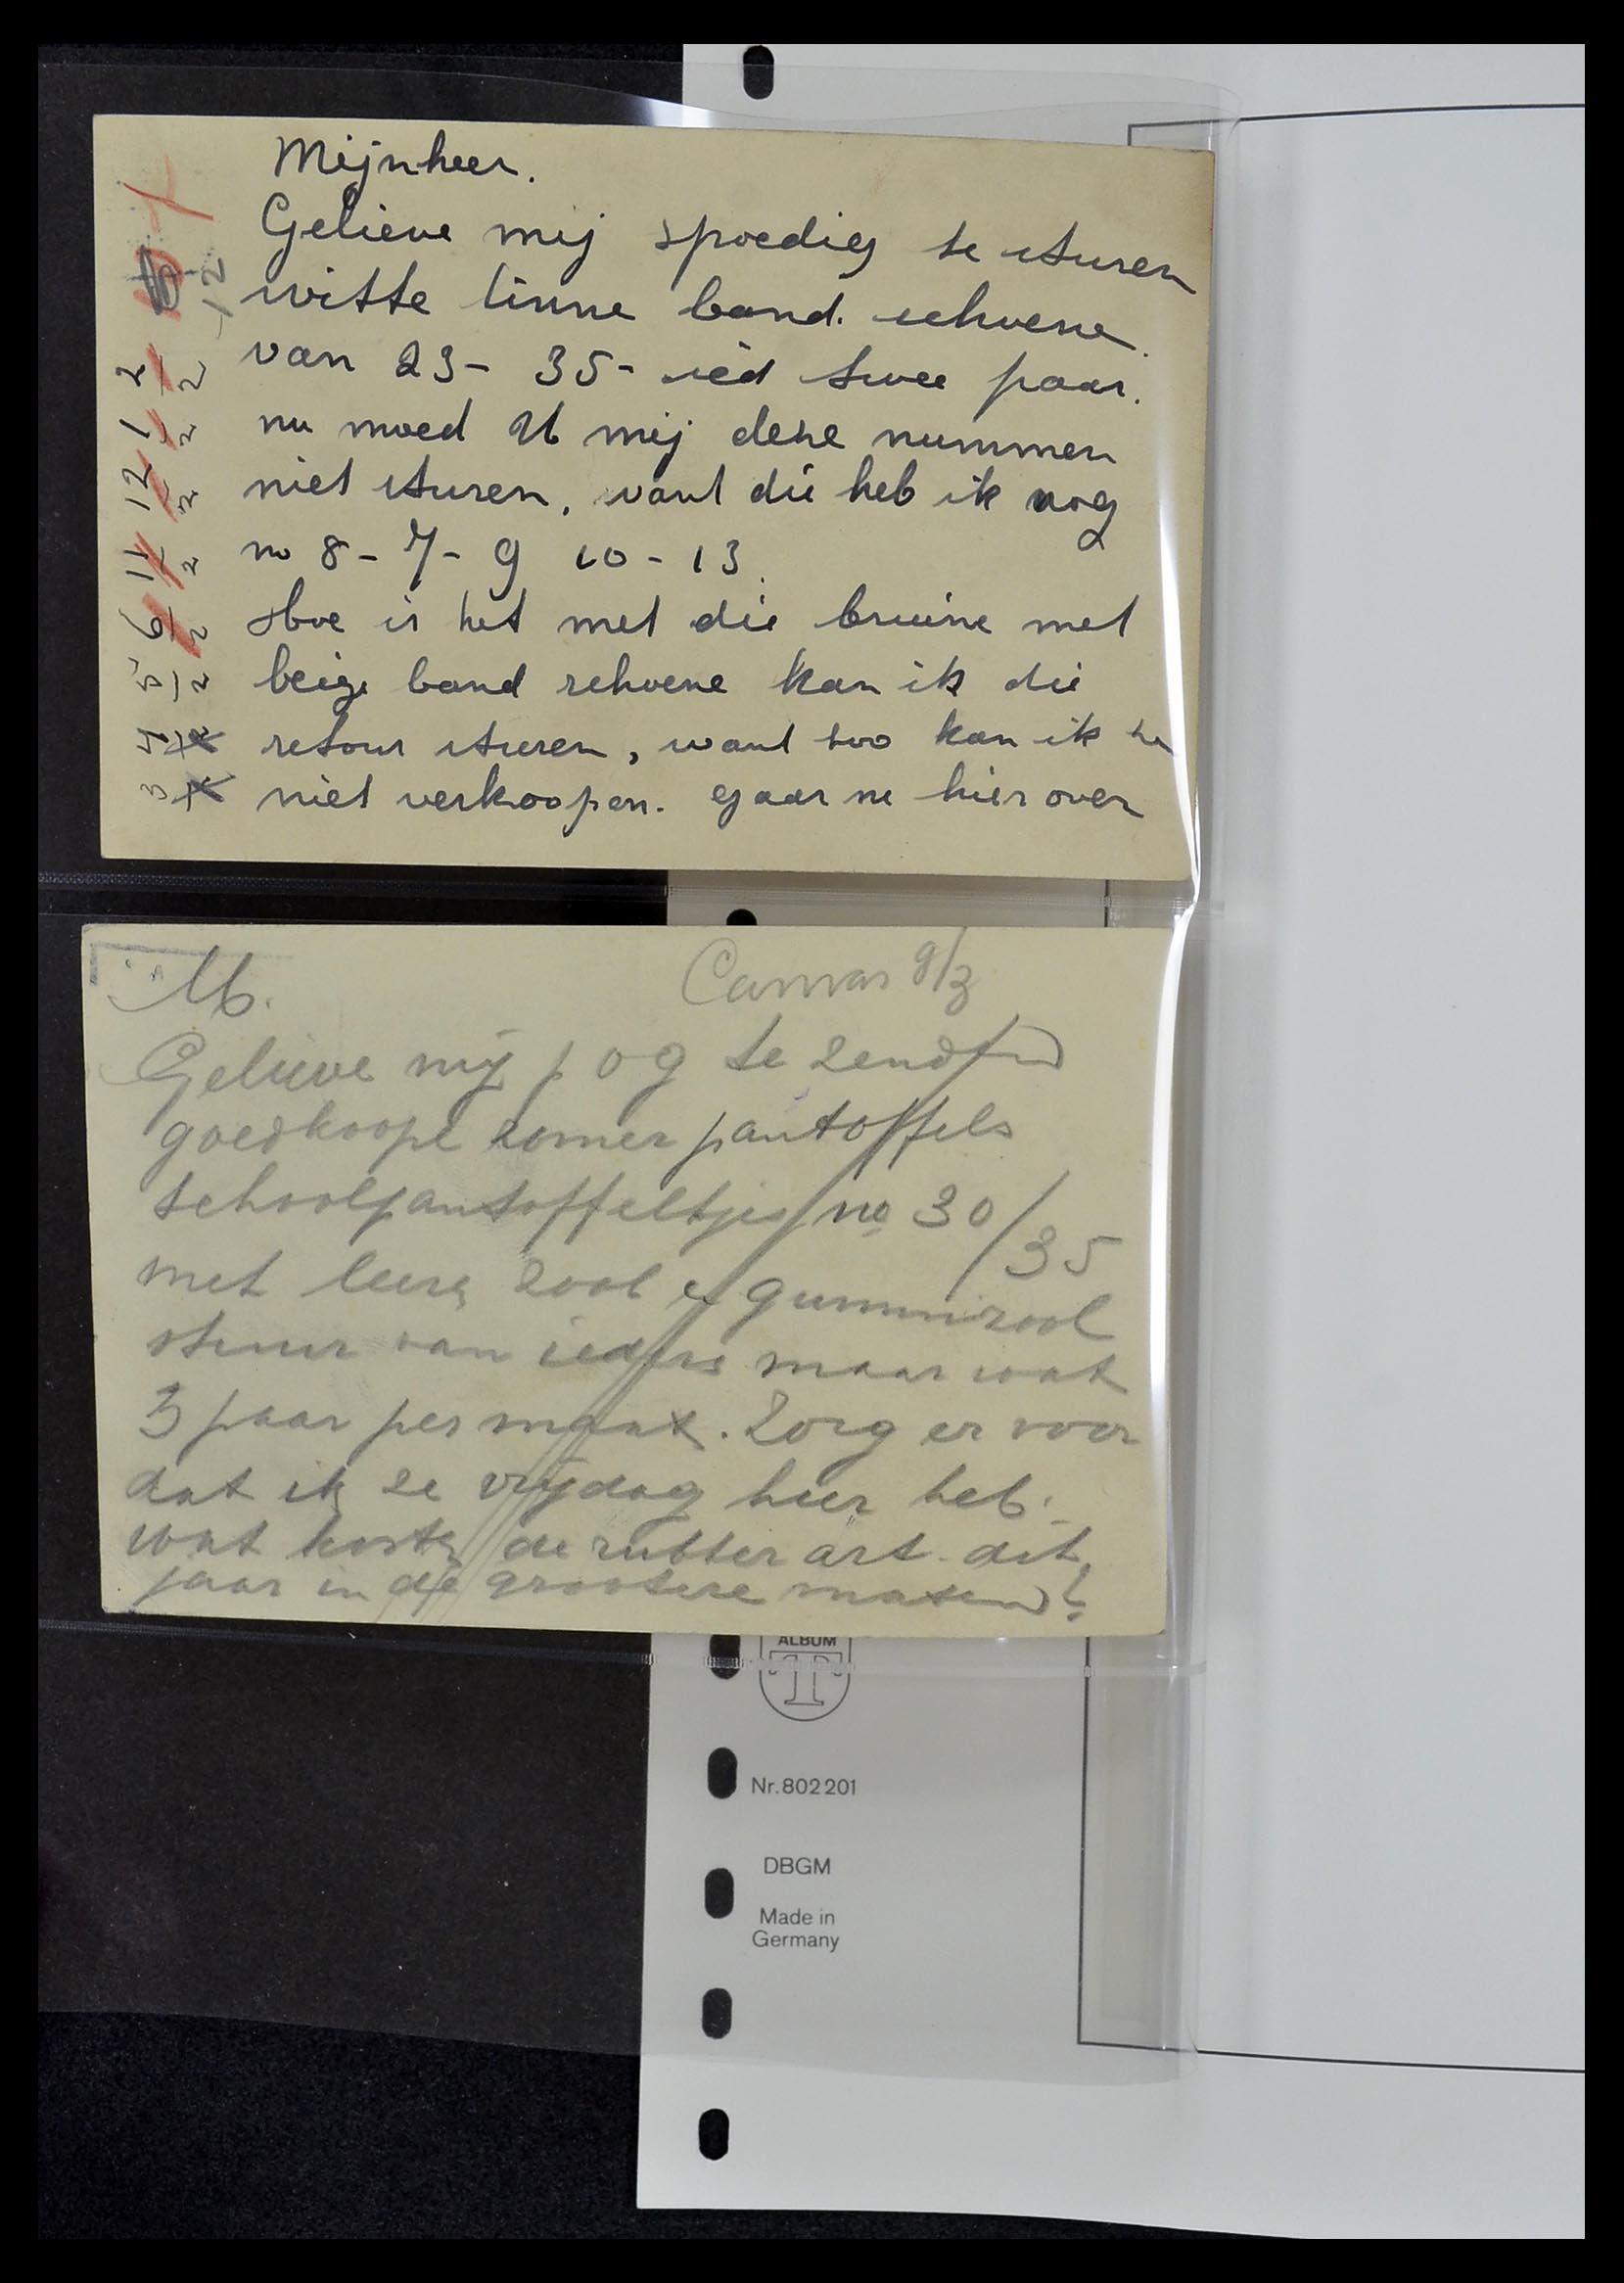 Mijnheer.
Gelieve mij spoedig te sturen
witte linne band. schoene
van 23- 35- ied twee paar.
nu moed U mij deze nummer
niet sturen, want die heb ik nog
no 8 - 7 - 9 10 - 13.
Hoe is het met die bruine met
beige band schoene kan ik die
retour sturen, want zoo kan ik ze
niet verkoopen. gaarne hier over
12
2 2
1 2
12 2
11 2
6 2
5 2
4
3
M. 9/3
Gelieve mij p o g te zenden
goedkoope zomer pantoffels
schoolpantoffeltjes no 30/35
met leere zool & gummizool
stuur van iedere maar wat
3 paar per maat. Zorg er voor
dat ik ze vrijdag hier heb.
wat kosten de rubber art. dit
jaar in de grootere maten?
ALBUM
T
Nr.802201
DBGM
Made in
Germany